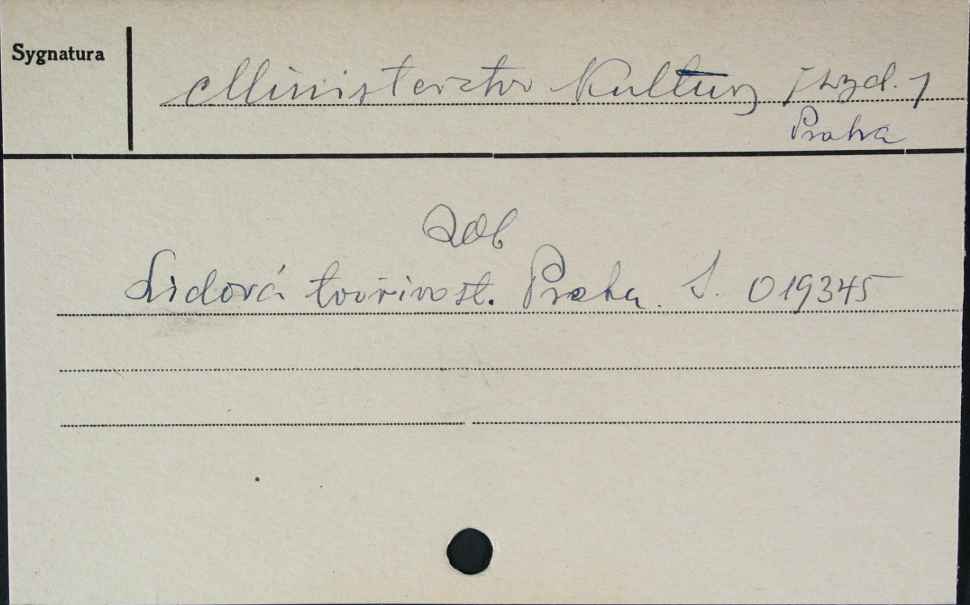 Sygnatura
Ministerstvo Kultury /wyd./
Praha
zob
Lidová tvořivost. Praha. S. 019345